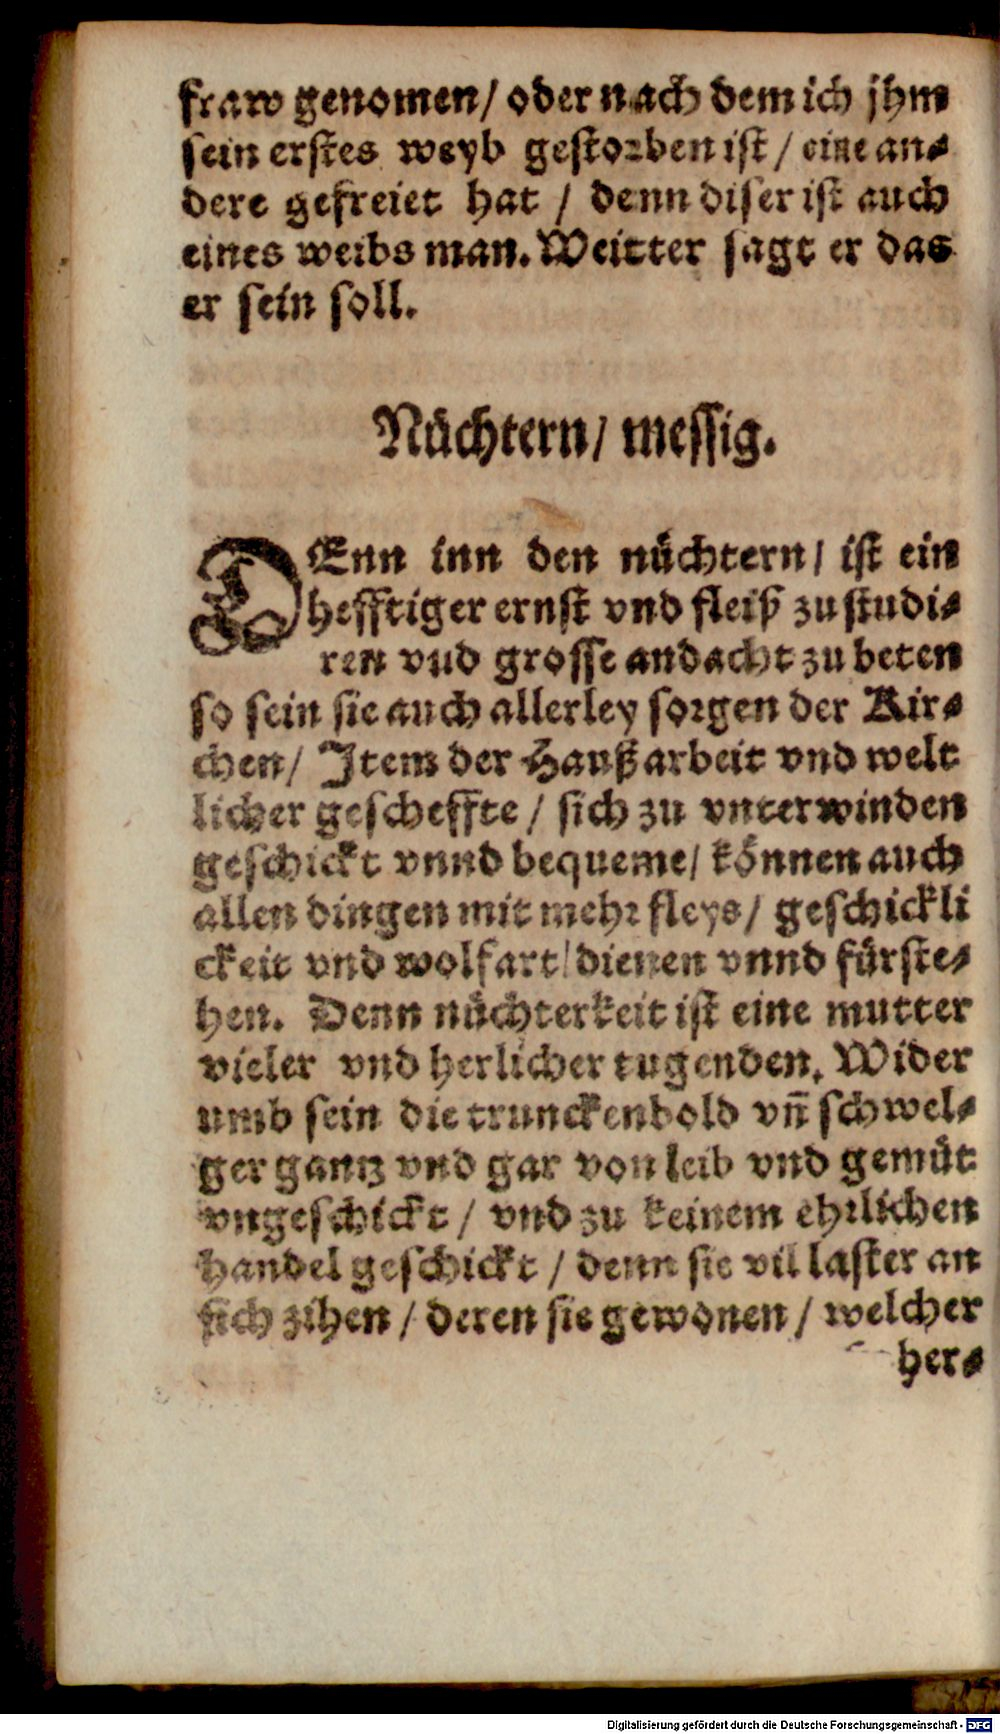 fraw genomen/ oder nach dem ich jhm
sein erstes weyb gestorben ist / eine an⸗
dere gefreiet hat / denn diser ist auch
eines weibs man. Weitter sagt er das
er sein soll.
Nüchtern/ messig.
DEnn inn den nüchtern/ ist ein
hefftiger ernst vnd fleiß zu studi⸗
ren vnd grosse andacht zu beten
so sein sie auch allerley sorgen der Kir⸗
chen/ Item der Haußarbeit vnd welt
licher gescheffte / sich zu vnterwinden
geschickt vnnd bequeme/ können auch
allen dingen mit mehr fleys/ geschickli
ckeit vnd wolfart/ dienen vnnd fürste⸗
hen. Denn nüchterkeit ist eine mutter
vieler vnd herlicher tugenden. Wider
umb sein die trunckenbold vñ schwel⸗
ger gantz vnd gar von leib vnd gemüt
vngeschickt / vnd zu keinem ehrlichen
handel geschickt / denn sie vil laster an
sich zihen / deren sie gewonen / welcher
her⸗
Digitalisierung gefördert durch die Deutsche Forschungsgemeinschaft - DFG